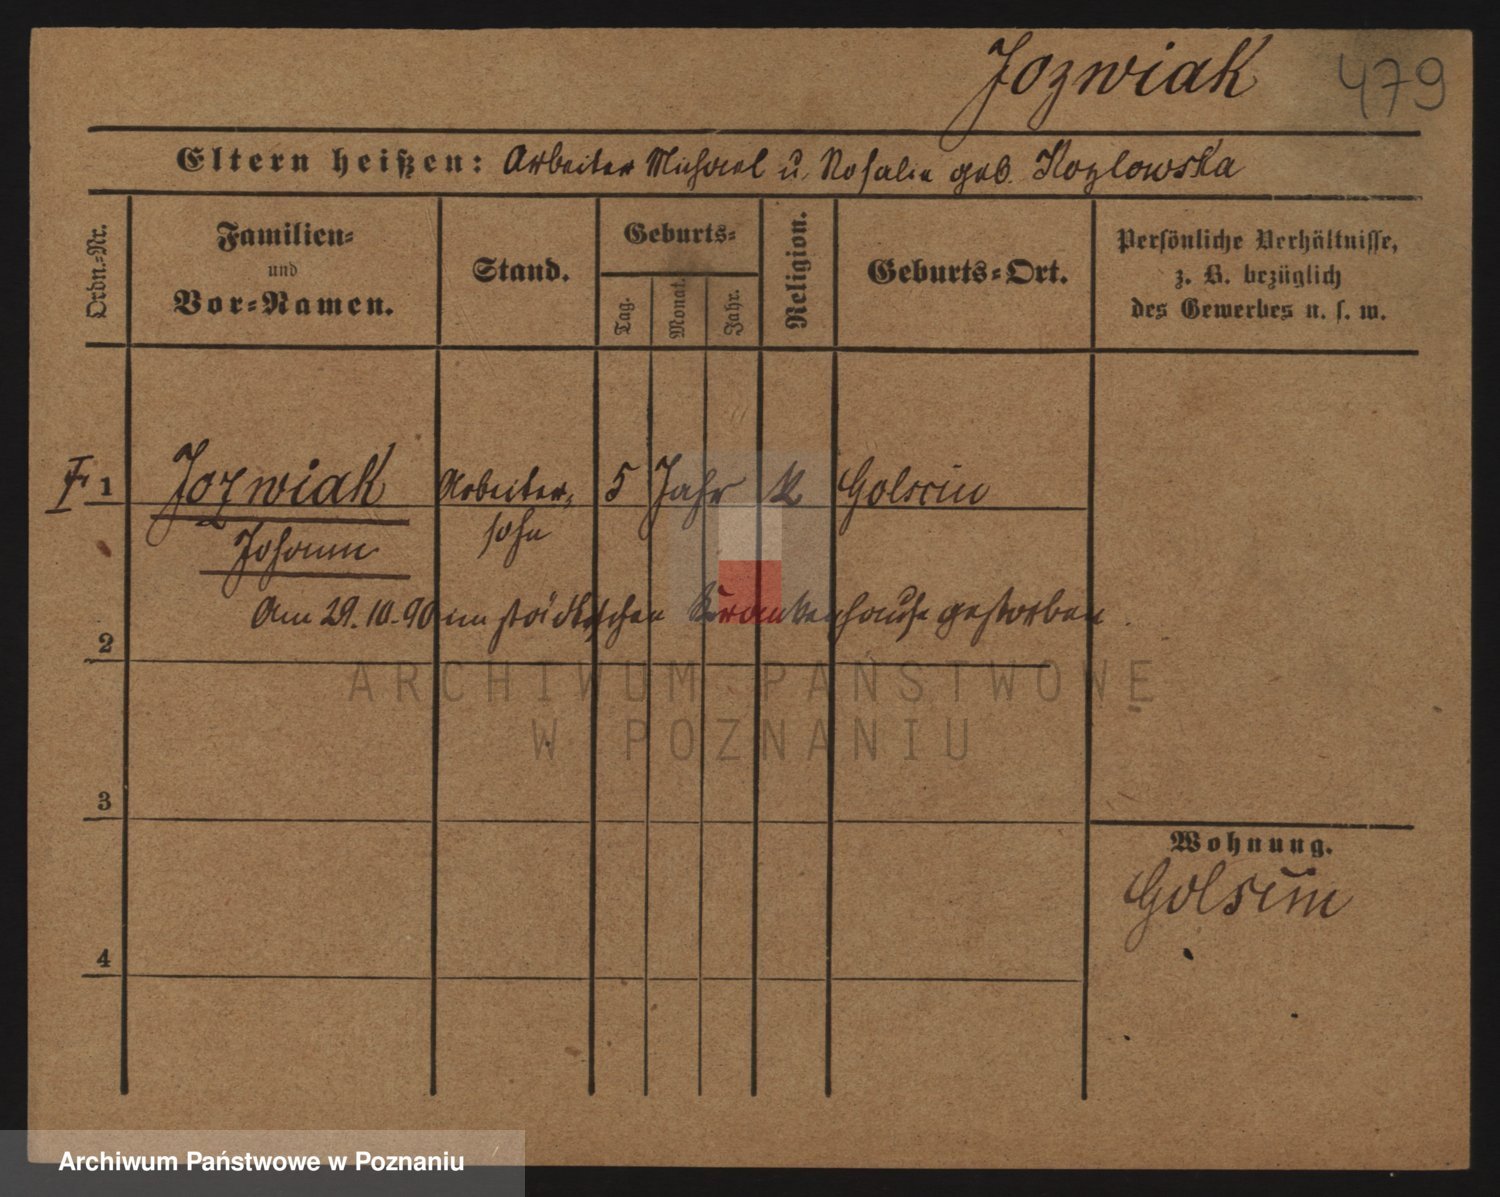 Jozwiak 479
Eltern heißen: Arbeiter Michael u. Rosalie geb. Kozlowska
Ordn.-Nr.
Familien-
und
Vor-Namen.
Stand.
Geburts-
Tag.
Monat.
Jahr.
Religion.
Geburts-Ort.
Persönliche Verhältnisse,
z. B. bezüglich
des Gewerbes u. s. w.
1 Jozwiak Arbeiter- 5 Jahr k Golscin
Johann sohn
Am 29.10.90 im städtischen Krankenhause gestorben.
2
ARCHIWUM PAŃSTWOWE
W POZNANIU
3
Wohnung.
Golscin
4
Archiwum Państwowe w Poznaniu